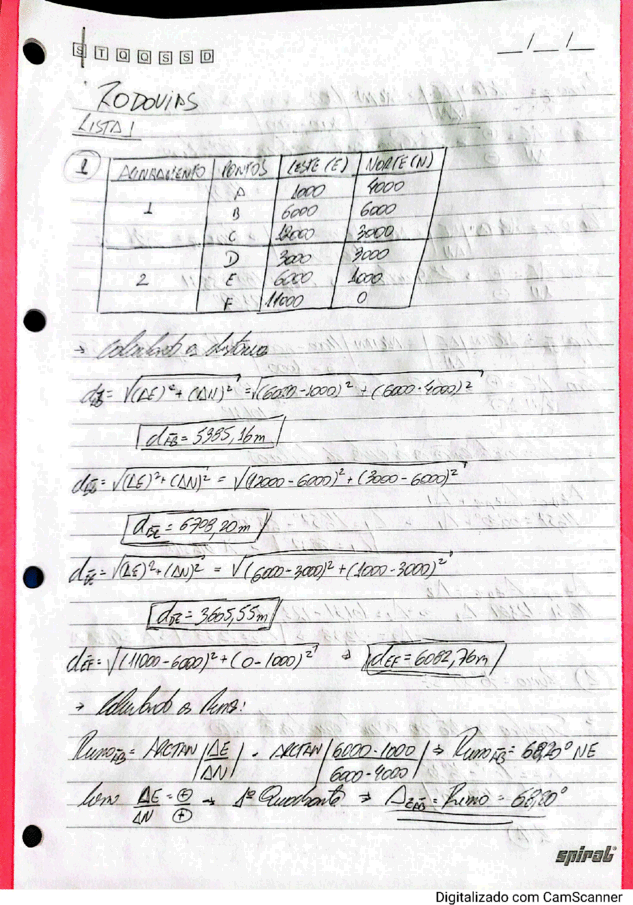 S T Q Q S S D
__/__/__
RODOVIAS
LISTA 1
1
AGRUPAMENTO PONTOS LESTE (E) NORTE (N)
A 1000 4000
1 B 6000 6000
C 12000 3000
D 3000 3000
2 E 6000 1000
F 11000 0
→ Calculando as distâncias
dAB = √(ΔE)² + (ΔN)² = √(6000-1000)² + (6000-4000)²
dAB = 5385,16m
dBC = √(ΔE)² + (ΔN)² = √(12000-6000)² + (3000-6000)²
dBC = 6708,20m
dDE = √(ΔE)² + (ΔN)² = √(6000-3000)² + (1000-3000)²
dDE = 3605,55m
dEF = √(11000-6000)² + (0-1000)² ⇒ dEF = 6082,76m
→ Calculando os Rumos:
RumoAB = ARCTAN |ΔE/ΔN| = ARCTAN |6000-1000/6000-4000| ⇒ RumoAB = 68,20° NE
Como ΔE/ΔN = ⊕/⊕ → 1º Quadrante ⇒ AzAB = Rumo = 68,20°
spiral
Digitalizado com CamScanner